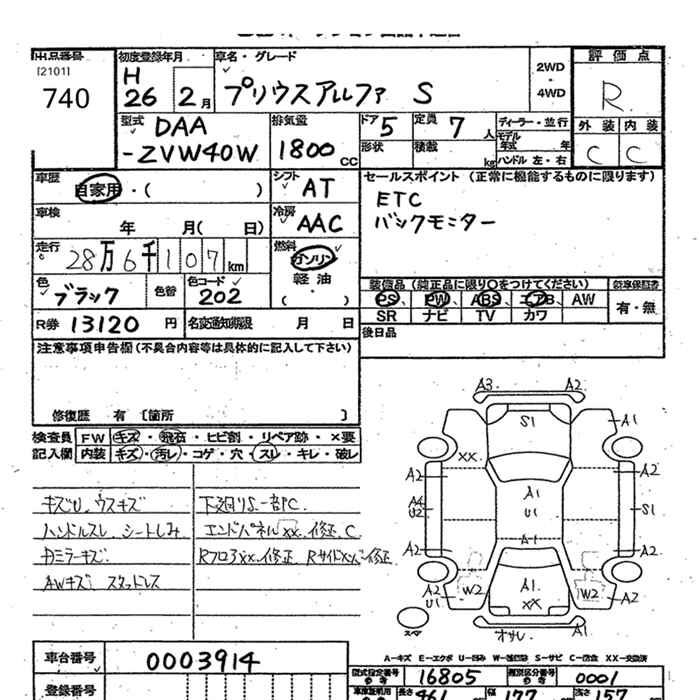 出品番号
[2101]
740
初度登録年月
H
26 2月
車名・グレード
プリウスアルファ S
2WD
・
4WD
評価点
R
外装 内装
C C
型式 DAA
-ZVW40W
排気量
1800 CC
ドア 5
形状
定員 7 人
積載 kg
ディーラー・並行
モデル
年式 年
ハンドル 左・右
車歴
自家用・( )
シフト
AT
車検
年 月( 日)
冷房
AAC
走行
28万6千107km
燃料
ガソリン
軽油
・( )
色
ブラック
色替
色コード
202
R券 13120 円
名変通知期限 月 日
セールスポイント (正常に機能するものに限ります)
ETC
バックモニター
装備品 (純正品に限り○をつけてください)
PS PW ABS エアB AW
SR ナビ TV カワ
新車保証書
有・無
後日品
注意事項申告欄(不具合内容等は具体的に記入して下さい)
修復歴 有 [箇所 ]
検査員
記入欄
FW キズ・飛石・ヒビ割・リペア跡・×要
内装 キズ・汚レ・コゲ・穴・スレ・キレ・破レ
キズU、ウスキズ
ハンドルスレ、シートしみ
カミラーキズ
AWキズ スタッドレス
下廻りS一部PC.
エンドパネルXX、修正、C
RフロアXX、修正 RサイドXX、修正
A3 A2
S1
A1
XX
A2
A2
A4
U2
A1
U1
S1
A2
A1
A2
A2
U1
W2
A1
XX
W2
A2
スペア
オサレ
A1
A-キズ E-エクボ U-凹み W-補修跡 S-サビ C-腐蝕 XX-交換済
車台番号 0003914
登録番号
型式指定番号 16805
類別区分番号 0001
長さ 461 幅 177 高さ 157